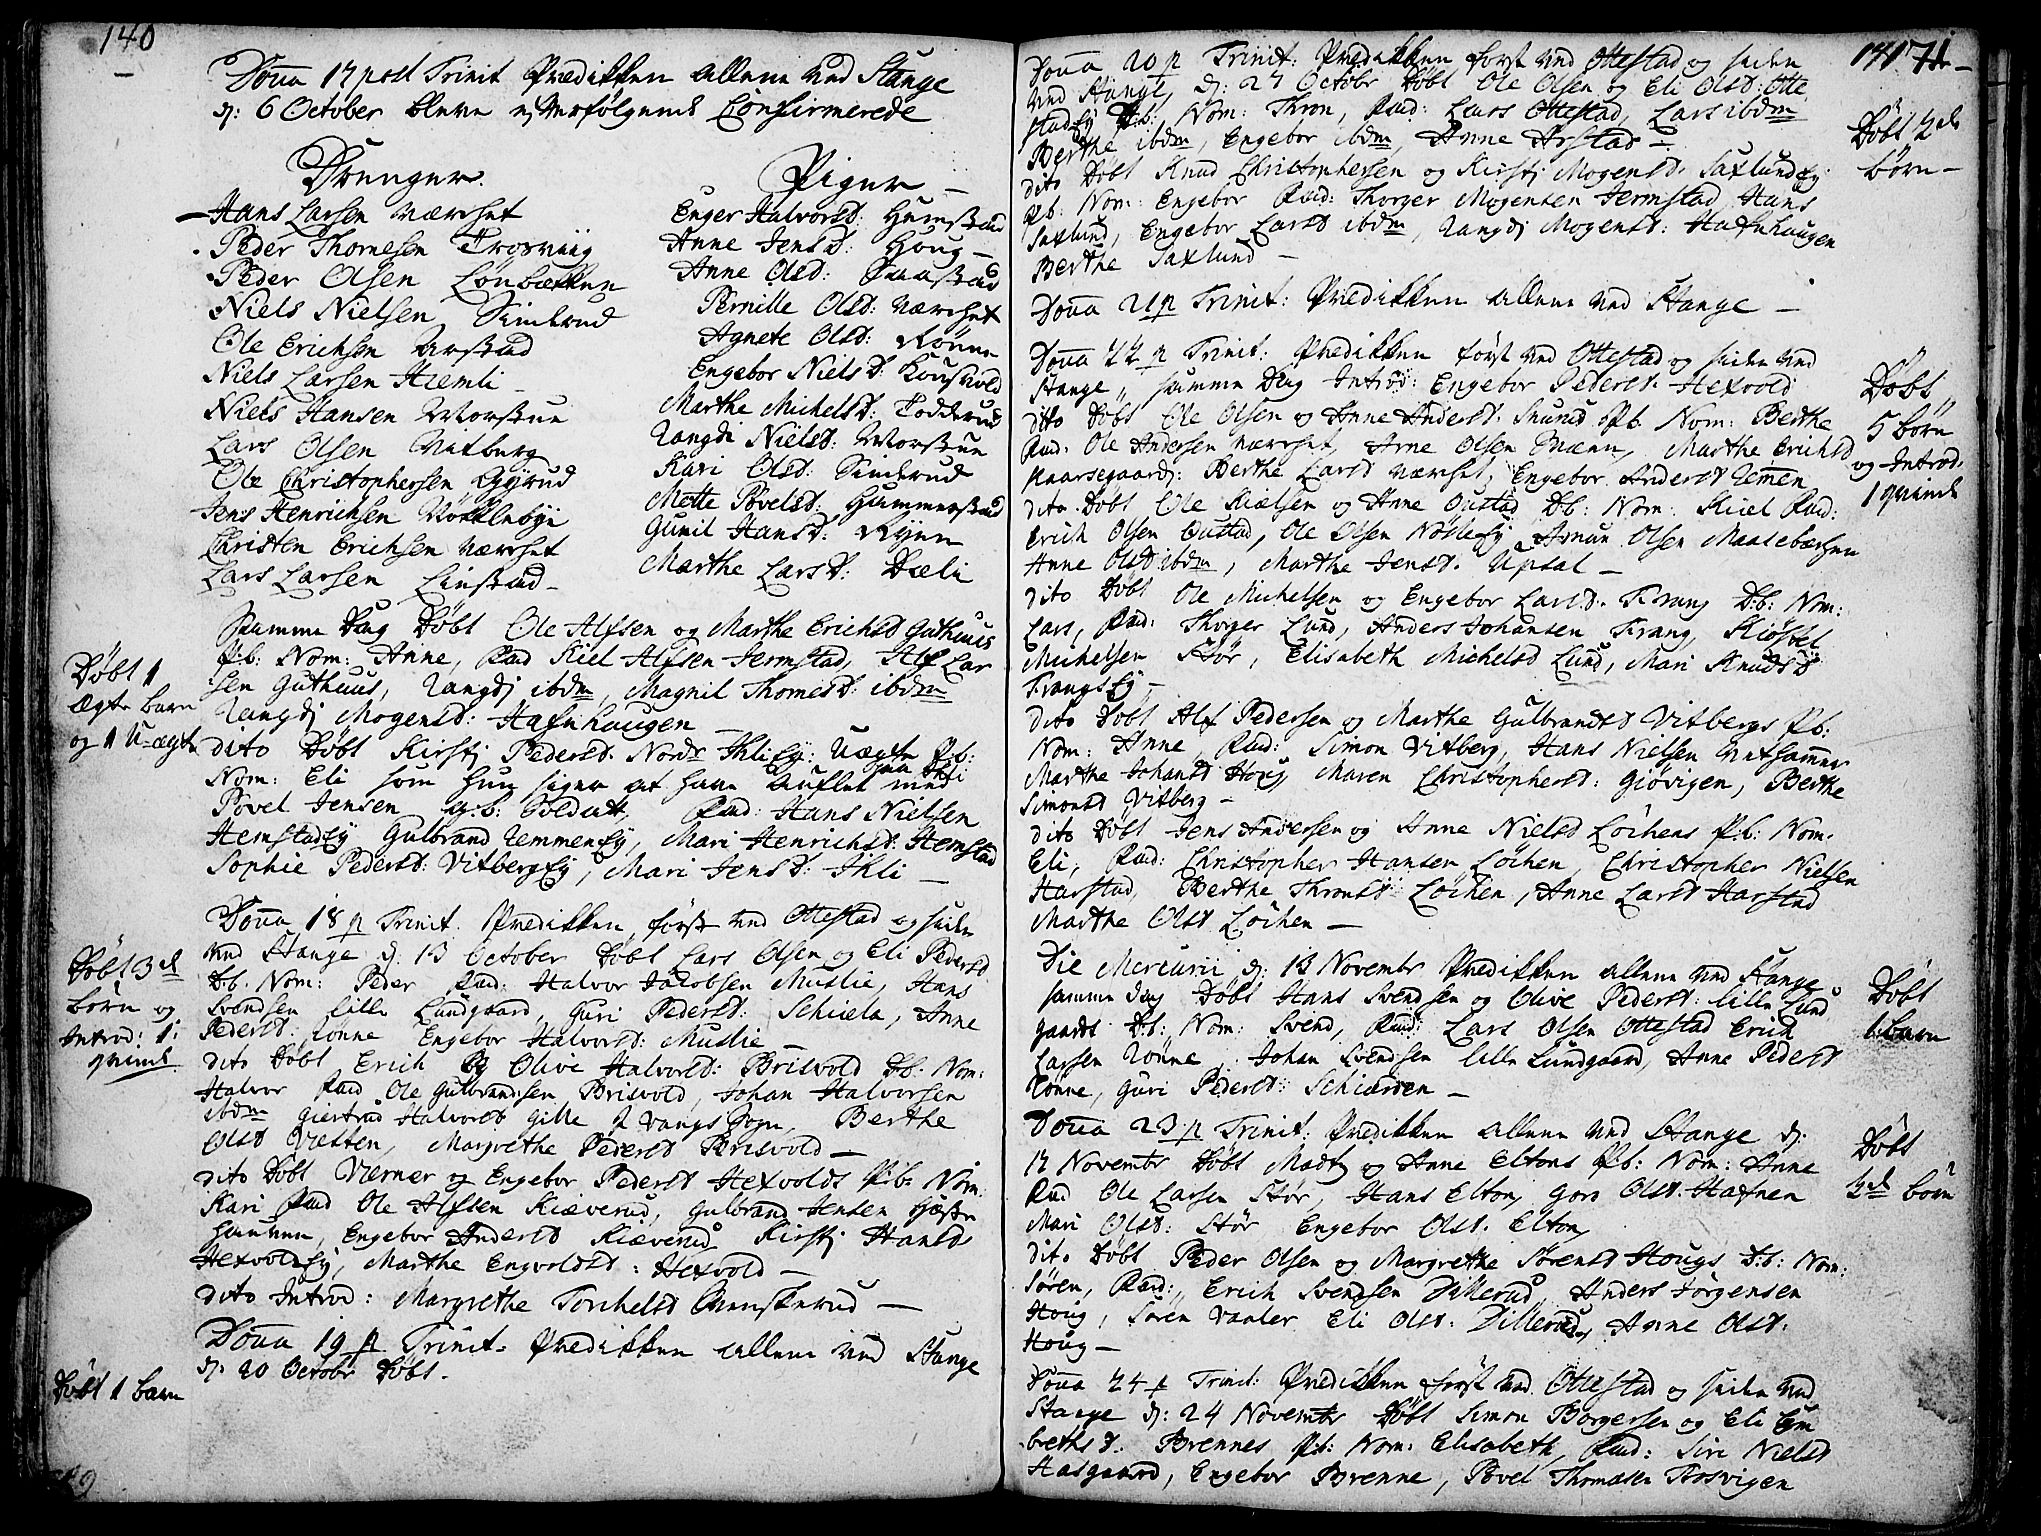 140
Dom̄a 17 post Trinit Prædikken allene ved Stange
d: 6 October bleve efterfølgende Confirmerede
Drenger.
Hans Larsen Nærshet
Peder Thomesen Trosviig
Peder Olsen Lönbækken
Niels Nielsen Sinderud
Ole Erichsen Arstad
Niels Larsen Hiemli
Niels Hansen Morstue
Lars Olsen Vitberg
Ole Christophersen Gyrud
Jens Henrichsen Nöklebye
Christen Erichsen Nærshet
Lars Larsen Linstad
Piger
Enger Halvorsd: Humstad
Anne Jensd: Houg
Anne Olsd: Raastad
Pernille Olsd: Nærshet
Agnete Olsd: Rönne
Engebor Nielsd: Kouskvold
Marthe Michelsd: Kodderud
Rangdi Nielsd: Morstue
Kari Olsd: Sinderud
Mette Povelsd: Hummerstad
Gunil Hansd: Ryen
Marthe Larsd: Dæli
Samme Dag Döbt Ole Alfsen og Marthe Erichsd Guthuus
P.b: Nom: Anne, Fad Kiel Alfsen Jermstad, Alf Lar
sen Guthuus, Rangdi ibdm, Magnil Thomesd: ibdm
Rangdj Mogensd: Hafnhaugen
dito Döbt Kirstj Pedersd. Nordr Ihli Ey: Uægte P.b:
Nom: Eli som hun siger at have auflet med
Povel Jensen g.b: Soldatt, Fad: Hans Nielsen
HemstadEy Gulbrand Remmen Ey, Mari Henrichsd: Hemstad
Sophie Pedersd: Vitberg Ey, Mari Jensd: Ihli
Döbt 1
ægte barn
og 1 U-ægte
Dom̄a 18 p Trinit. Prædikken först ved Ottestad og siden
ved Stange d: 13 October Döbt Lars Olsen og Eli Pedersd
D.b. Nom: Peder Fad: Halvor Jacobsen Muslie, Hans
Svendsen Lille Lundgaard, Guri Pedersd: Schiæla, Anne
Pedersd: Rönne Engebor Halvorsd: Muslie
dito Döbt Erich og Olive Halvorsd: Brisvold D.b: Nom:
Halvor Fad Ole Gulbrandsen Brisvold, Johan Halvorsen
ibdm Giertrud Halvorsd Gille i Vangs Sogn, Berthe
Olsd Væsten, Margrethe Pedersd Brisvold
dito Döbt Verner og Engebor Pedersd Hexvolds P.b: Nom:
Kari Fad Ole Alfsen Kiæverud, Gulbrand Jensen
Engebor Andersd Kiæverud Kirstj Hansd
Hexvold Ey, Marthe Engvoldsd: Hexvold
dito Introd: Margrethe Torchelsd
Döbt 3de
börn og
Introd: 1
qvinde
Dom̄a 19 p Trinit. Prædikken allene ved Stange
d: 20 Octobr Döbt.
Döbt 1 barn
141
Dom̄a 20 p Trinit: Prædikken först ved Ottestad og siden
ved Stange, d: 27 Octobr Döbt Ole Olsen og Eli Olsd: Otte
stad Ey D.b: Nom: Thron, Fad: Lars Ottestad, Lars ibdm
Berthe ibdm, Engebor ibdm, Anne Arstad
dito Döbt Knud Christophersen og Kirstj Mogensd. Saxlund Ey
P.b: Nom: Engebor Fad: Thorger Mogensen Jermstad, Hans
Saxlund, Engebor Larsd ibdm, Rangdj Mogensd: Hafnhaugen
Berthe Saxlund
Döbt 2de
börn
Dom̄a 21 p Trinit: Prædikken allene ved Stange
Dom̄a 22 p Trinit: Prædikken först ved Ottestad og siden ved
Stange, samme Dag Introd: Engebor Pedersd. Hexvold
dito Döbt Ole Olsen og Anne Andersd. P.b. Nom: Berthe
Fad: Ole Andersen Nærshet, Arne Olsen Mæen, Marthe Erichsd
Kaarsegaard: Berthe Larsd Nærshet, Engebor Andersd Remen
dito Döbt Ole Kielsen og Anne Oustad D.b: Nom: Kiel Fad:
Erich Olsen Oustad, Ole Olsen Nöklebj, Amun Olsen
Anne Olsd: ibdm, Marthe Jensd. Upsal
dito Döbt Ole Michelsen og Engebor Larsd. Frang D.b: Nom:
Lars, Fad: Thorger Lund, Anders Johansen Frang, Kiöstel
Michelsen Stör, Elisabeth Michelsd Lund, Mari Knudsd
Frangs Ey
dito Döbt Alf Pedersen og Marthe Gulbrandsd Vitbergs P.b:
Nom: Anne, Fad: Simon Vitberg, Hans Nielsen
Marthe Johansd Houg Maren Christophersd: Giövigen, Berthe
Simonsd Vitberg
dito Döbt Jens Andersen og Anne Nielsd Löchens P.b: Nom.
Eli, Fad: Christopher Hansen Löchen, Christopher Nielsen
Harstad, Berthe Thronsd Löchen, Anne Larsd Harstad
Marthe Olsd Löchen
Döbt
5 börn
og Introd.
1 qvinde
Die Mercurii d: 13 Novembr Prædikken allene ved Stange
samme dag Döbt Hans Svendsen og Olive Pedersd: Lille Lund
gaards D.b: Nom: Svend, Fad: Lars Olsen Ottestad Erich
Larsen Rönne, Johan Svendsen Lille Lundgaard, Anne Pedersd
Rönne, Guri Pedersd: Schiærden
Döbt
1 barn
Dom̄a 23 p Trinit: Prædikken allene ved Stange d:
17 Novembr Döbt Madtz og Anne Eltons P.b: Nom: Anne
Fad Ole Larsen Stör, Hans Elton, Goro Olsd. Hafnen
Mari Olsd: Stör Engebor Olsd. Elton
dito Döbt Peder Olsen og Margrethe Sörensd Hougs D.b: Nom:
Sören, Fad: Erich Svendsen Dillerud, Anders Jörgensen
Houg, Sören Vaaler Eli Olsd: Dillerud, Anne Olsd.
Houg
Döbt
2de börn
Dom̄a 24 p Trinit: Prædikken först ved Ottestad og siden ved
Stange d: 24 Novembr Döbt Simon Borgersen og Eli Em
brethsd. Brennes P.b: Nom: Elisabeth, Fad: Siri Nielsd
Hasgaard, Engebor Brenne, Povel Thomæsen Rosvigen